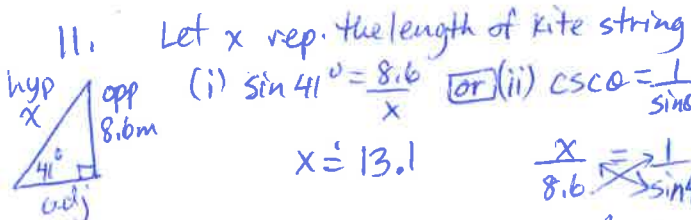 11. Let x rep. the length of kite string
hyp x opp 8.6m 41° adj
(i) sin 41° = 8.6/x or (ii) cscθ = 1/sinθ
x ≐ 13.1 x/8.6 = 1/sin